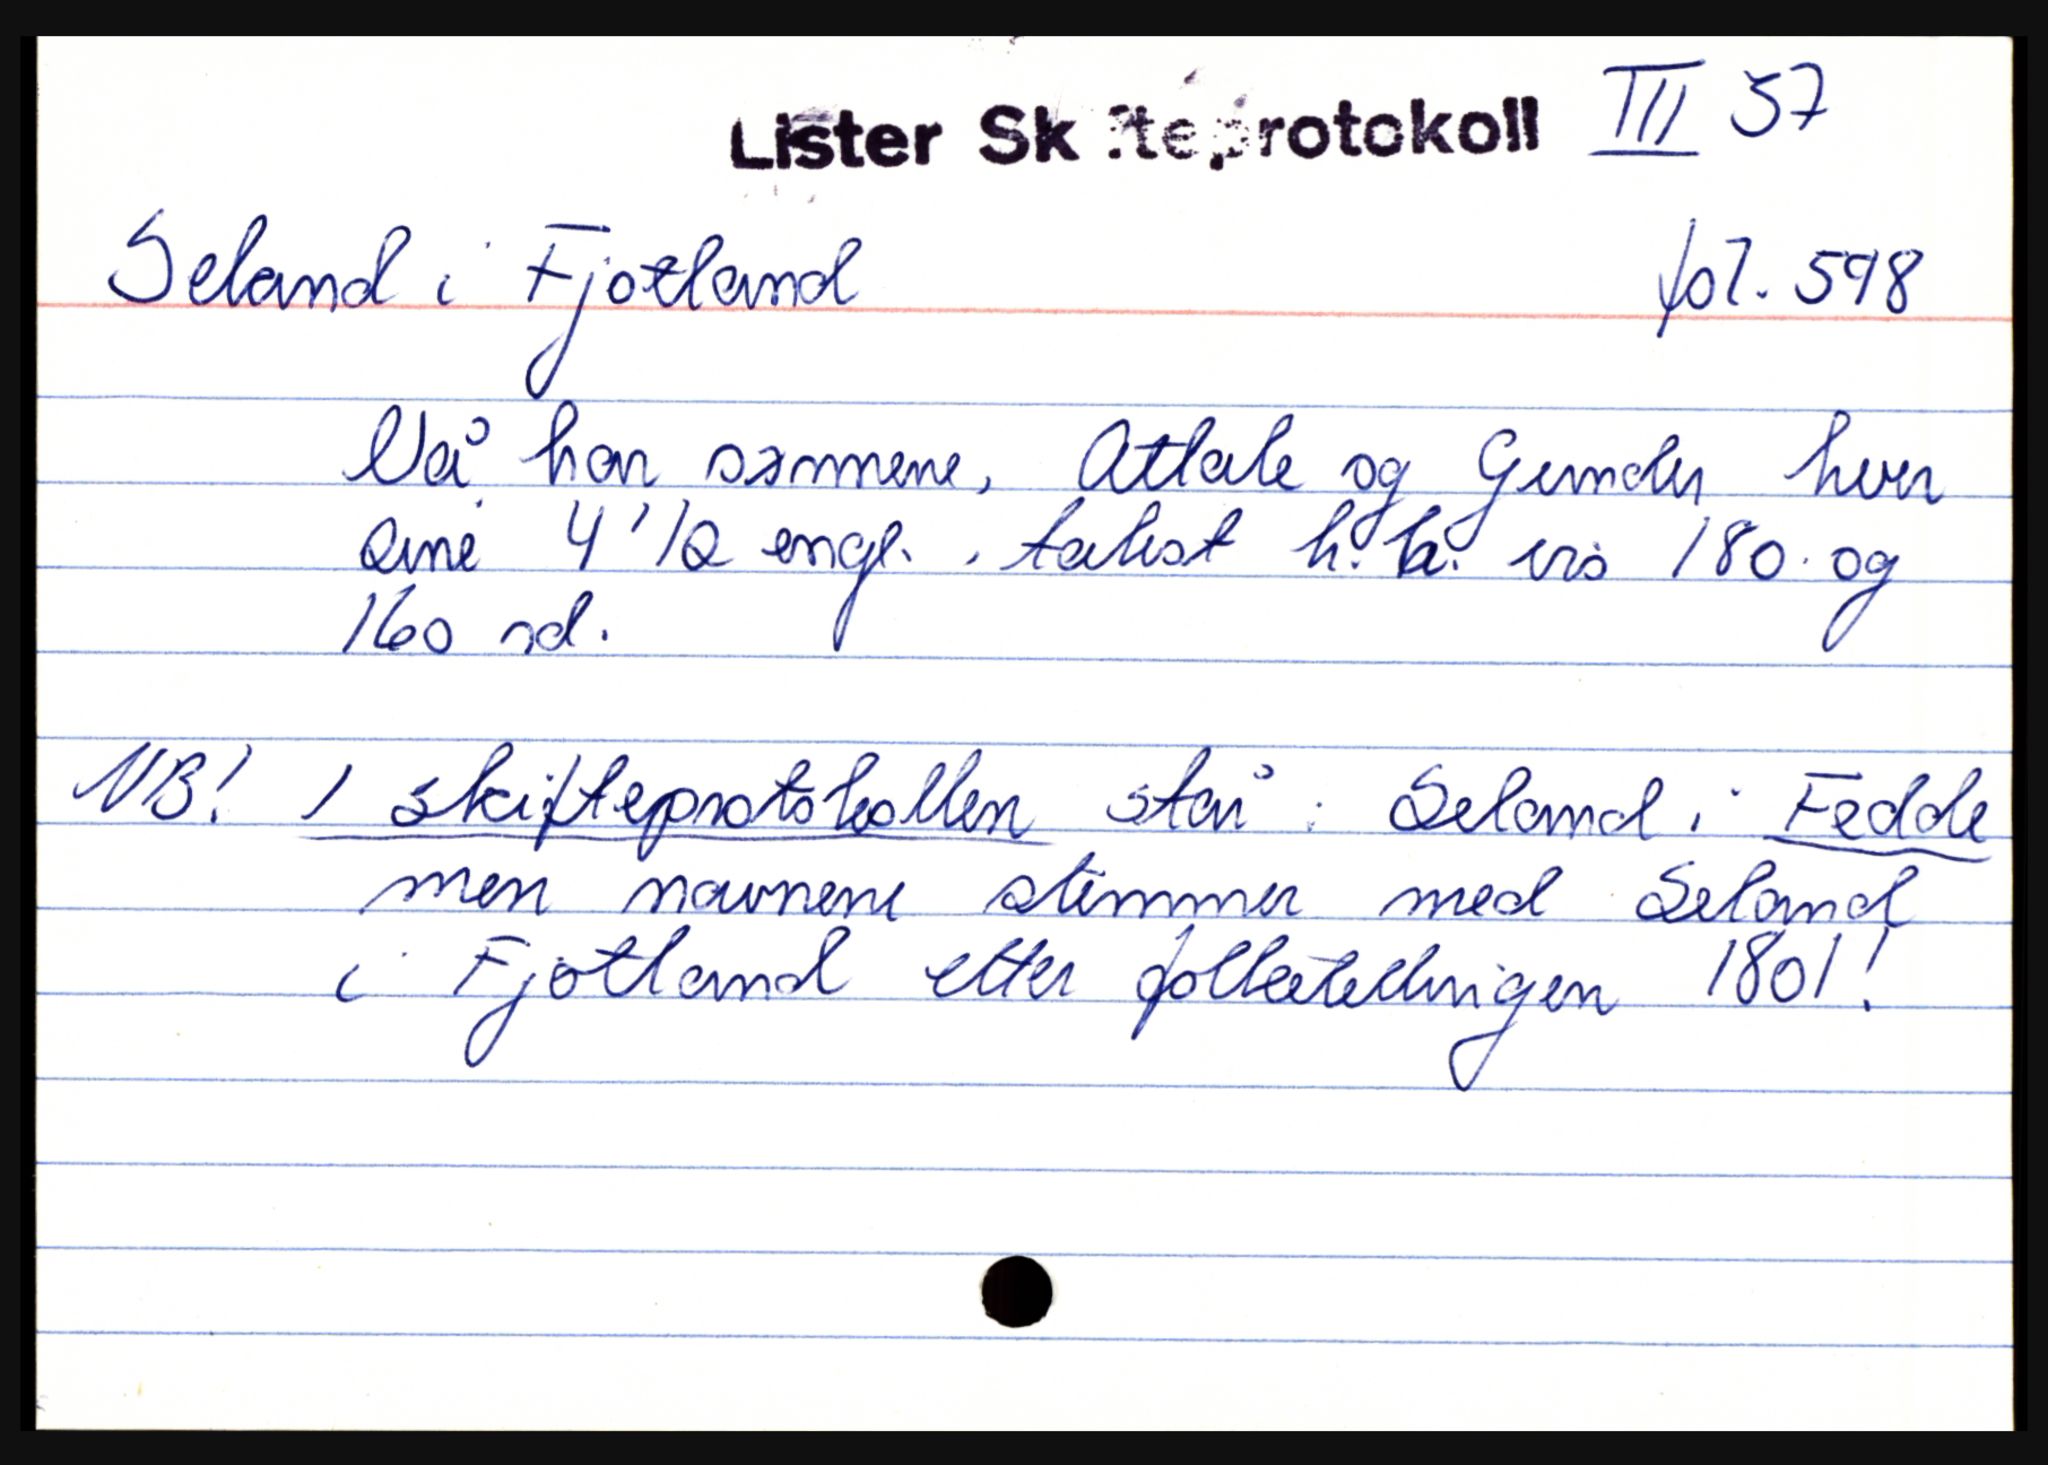 Lister Skifteprotokoll III 57
Seland i Fjotland fol. 598
Nå har sønnene, Atlake og Gunder hver
eine 4 1/2 engl. takst h.h. vis 180 og
160 rd.
NB! I skifteprotokollen står: Seland i Fedde
men navnene stemmer med Seland
i Fjotland etter folketellingen 1801!